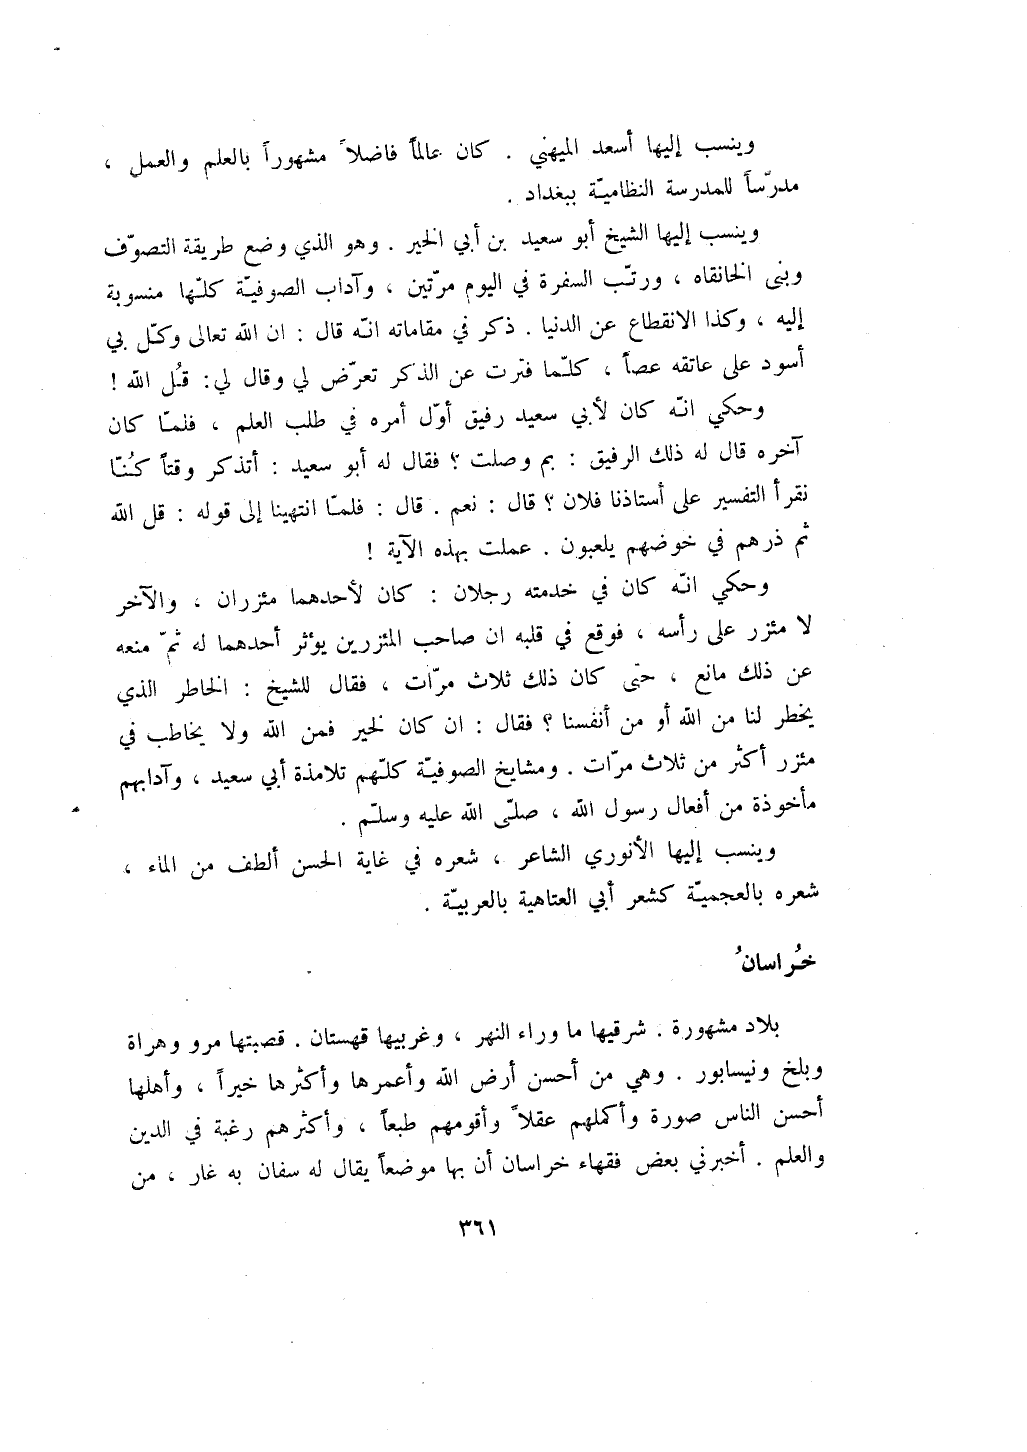 وينسب إليها أسعد الميهني . كان عالماً فاضلاً مشهوراً بالعلم والعمل ،
مدرّساً للمدرسة النظاميّة ببغداد .
وينسب إليها الشيخ أبو سعيد بن أبي الخير . وهو الذي وضع طريقة التصوّف
وبنى الخانقاه ، ورتّب السفرة في اليوم مرّتين ، وآداب الصوفيّة كلّها منسوبة
إليه ، وكذا الانقطاع عن الدنيا . ذكر في مقاماته انّه قال : ان الله تعالى وكّل بي
أسود على عاتقه عصاً ، كلّما فترت عن الذكر تعرّض لي وقال لي : قُل الله !
وحكي انّه كان لأبي سعيد رفيق أوّل أمره في طلب العلم ، فلمّا كان
آخره قال له ذلك الرفيق : بم وصلت ؟ فقال له أبو سعيد : أتذكر وقتاً كُنّا
نقرأ التفسير على أستاذنا فلان ؟ قال : نعم . قال : فلمّا انتهينا إلى قوله : قل الله
ثم ذرهم في خوضهم يلعبون . عملت بهذه الآية !
وحكي انّه كان في خدمته رجلان : كان لأحدهما مئزران ، والآخر
لا مئزر على رأسه ، فوقع في قلبه ان صاحب المئزرين يؤثر أحدهما له ثمّ منعه
عن ذلك مانع ، حتى كان ذلك ثلاث مرّات ، فقال للشيخ : الخاطر الذي
يخطر لنا من الله أو من أنفسنا ؟ فقال : ان كان لخير فمن الله ولا يخاطب في
مئزر أكثر من ثلاث مرّات . ومشايخ الصوفيّة كلّهم تلامذة أبي سعيد ، وآدابهم
مأخوذة من أفعال رسول الله ، صلّى الله عليه وسلّم .
وينسب إليها الأنوري الشاعر ، شعره في غاية الحسن ألطف من الماء ،
شعره بالعجميّة كشعر أبي العتاهية بالعربيّة .
خُراسانُ
بلاد مشهورة . شرقيها ما وراء النهر ، وغربيها قهستان . قصبتها مرو وهراة
وبلخ ونيسابور . وهي من أحسن أرض الله وأعمرها وأكثرها خيراً ، وأهلها
أحسن الناس صورة وأكملهم عقلاً وأقومهم طبعاً ، وأكثرهم رغبة في الدين
والعلم . أخبرني بعض فقهاء خراسان أن بها موضعاً يقال له سفان به غار ، من
٣٦١